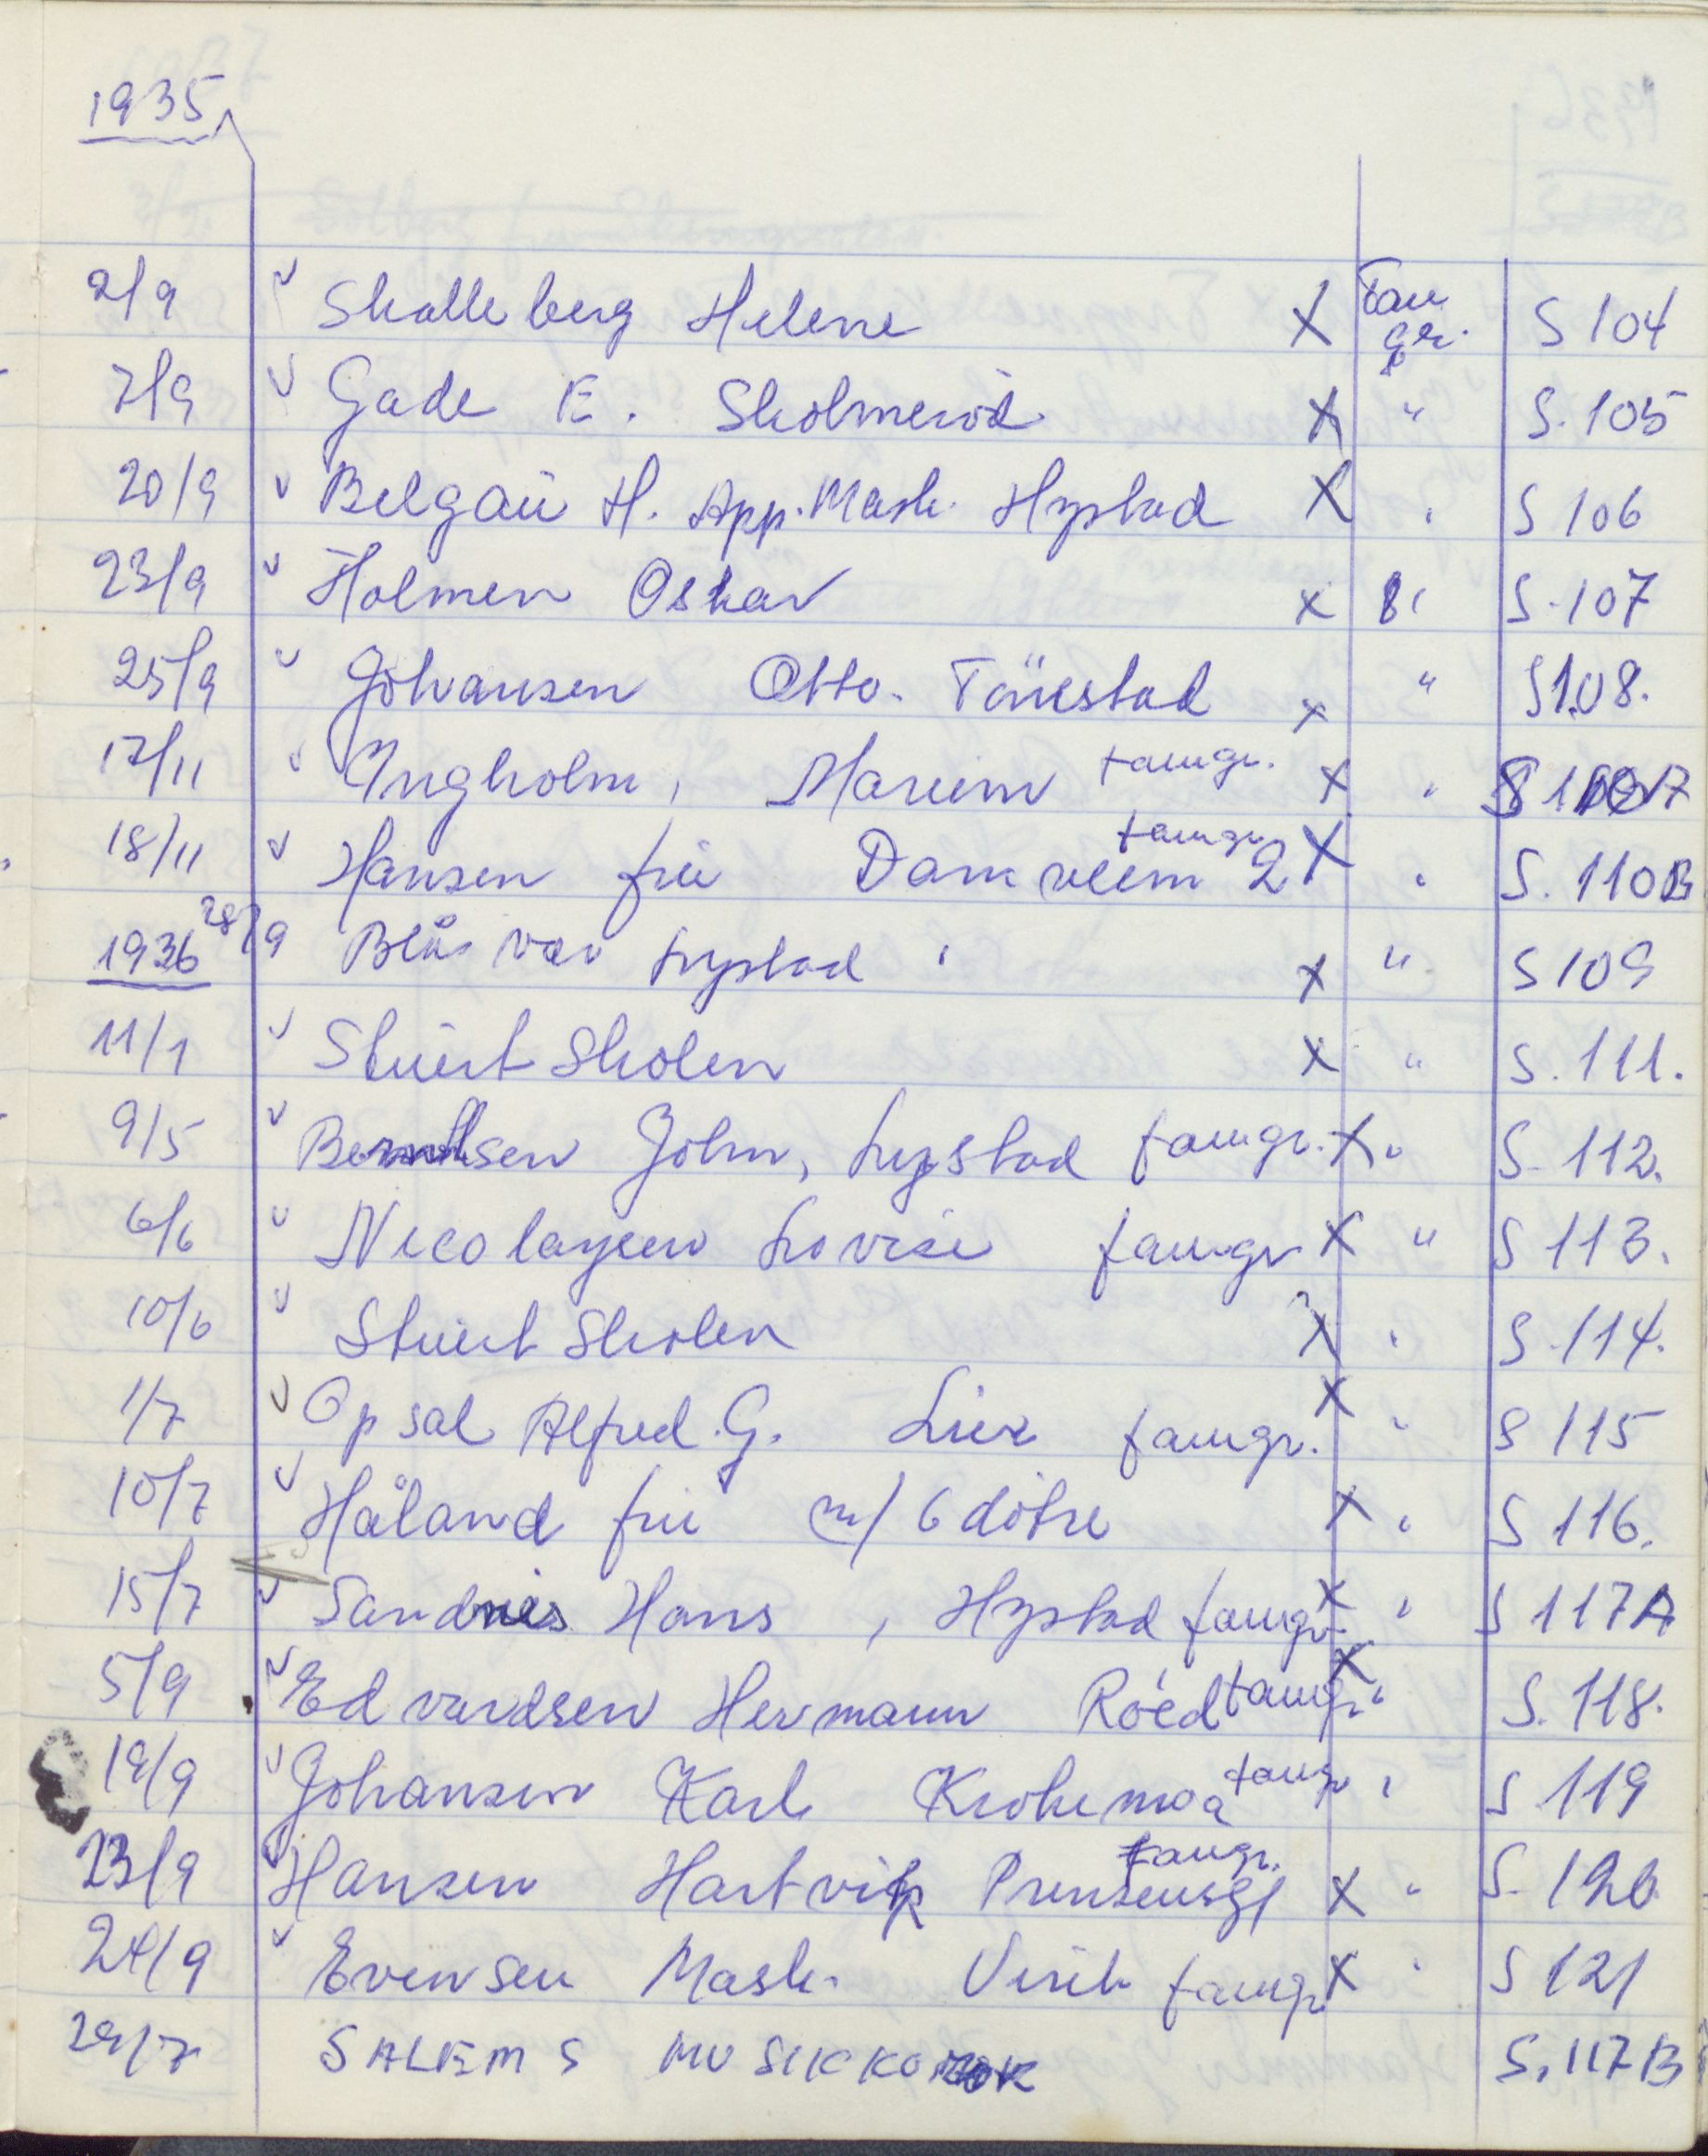 1935
2/9 v Skalleberg Helene X Fam gr. S 104
7/9 v Gade E. Skolmeröd X " S. 105
20/9 v Belgau H. App. Mask. Hystad X " S 106
23/9 v Holmen Oskar x " S. 107
25/9 v Johansen Otto. x " S 108.
17/11 v Ingholm, famgr. x "
18/11 v Hansen fru famgr. 2 X " S. 110B
1936 28/9 Blåsvær Lystad x " S 109
11/1 v Stuert Skolen x " S. 111.
9/5 v Berntsen John, Lystad famgr. X " S. 112.
6/6 v Nicolaysen Lovise famgr X " S 113.
10/6 v Stuert Skolen X " S. 114.
1/7 v Opsal Alfred. G. Lier famgr. X " S 115
10/7 v Håland fru m/ 6 døtre X " S 116.
15/7 v Sandnes Hans, Hystad famgr X " S 117A
5/9 v Edvardsen Hermann Röed famgr X " S. 118.
19/9 v Johansen Karl Krokemoa famgr " S. 119
23/9 v Hansen Hartvik famgr. X " S. 120
24/9 v Evensen Mask. famgr X " S 121
29/7 SALEMS MUSIKKOR S. 117B